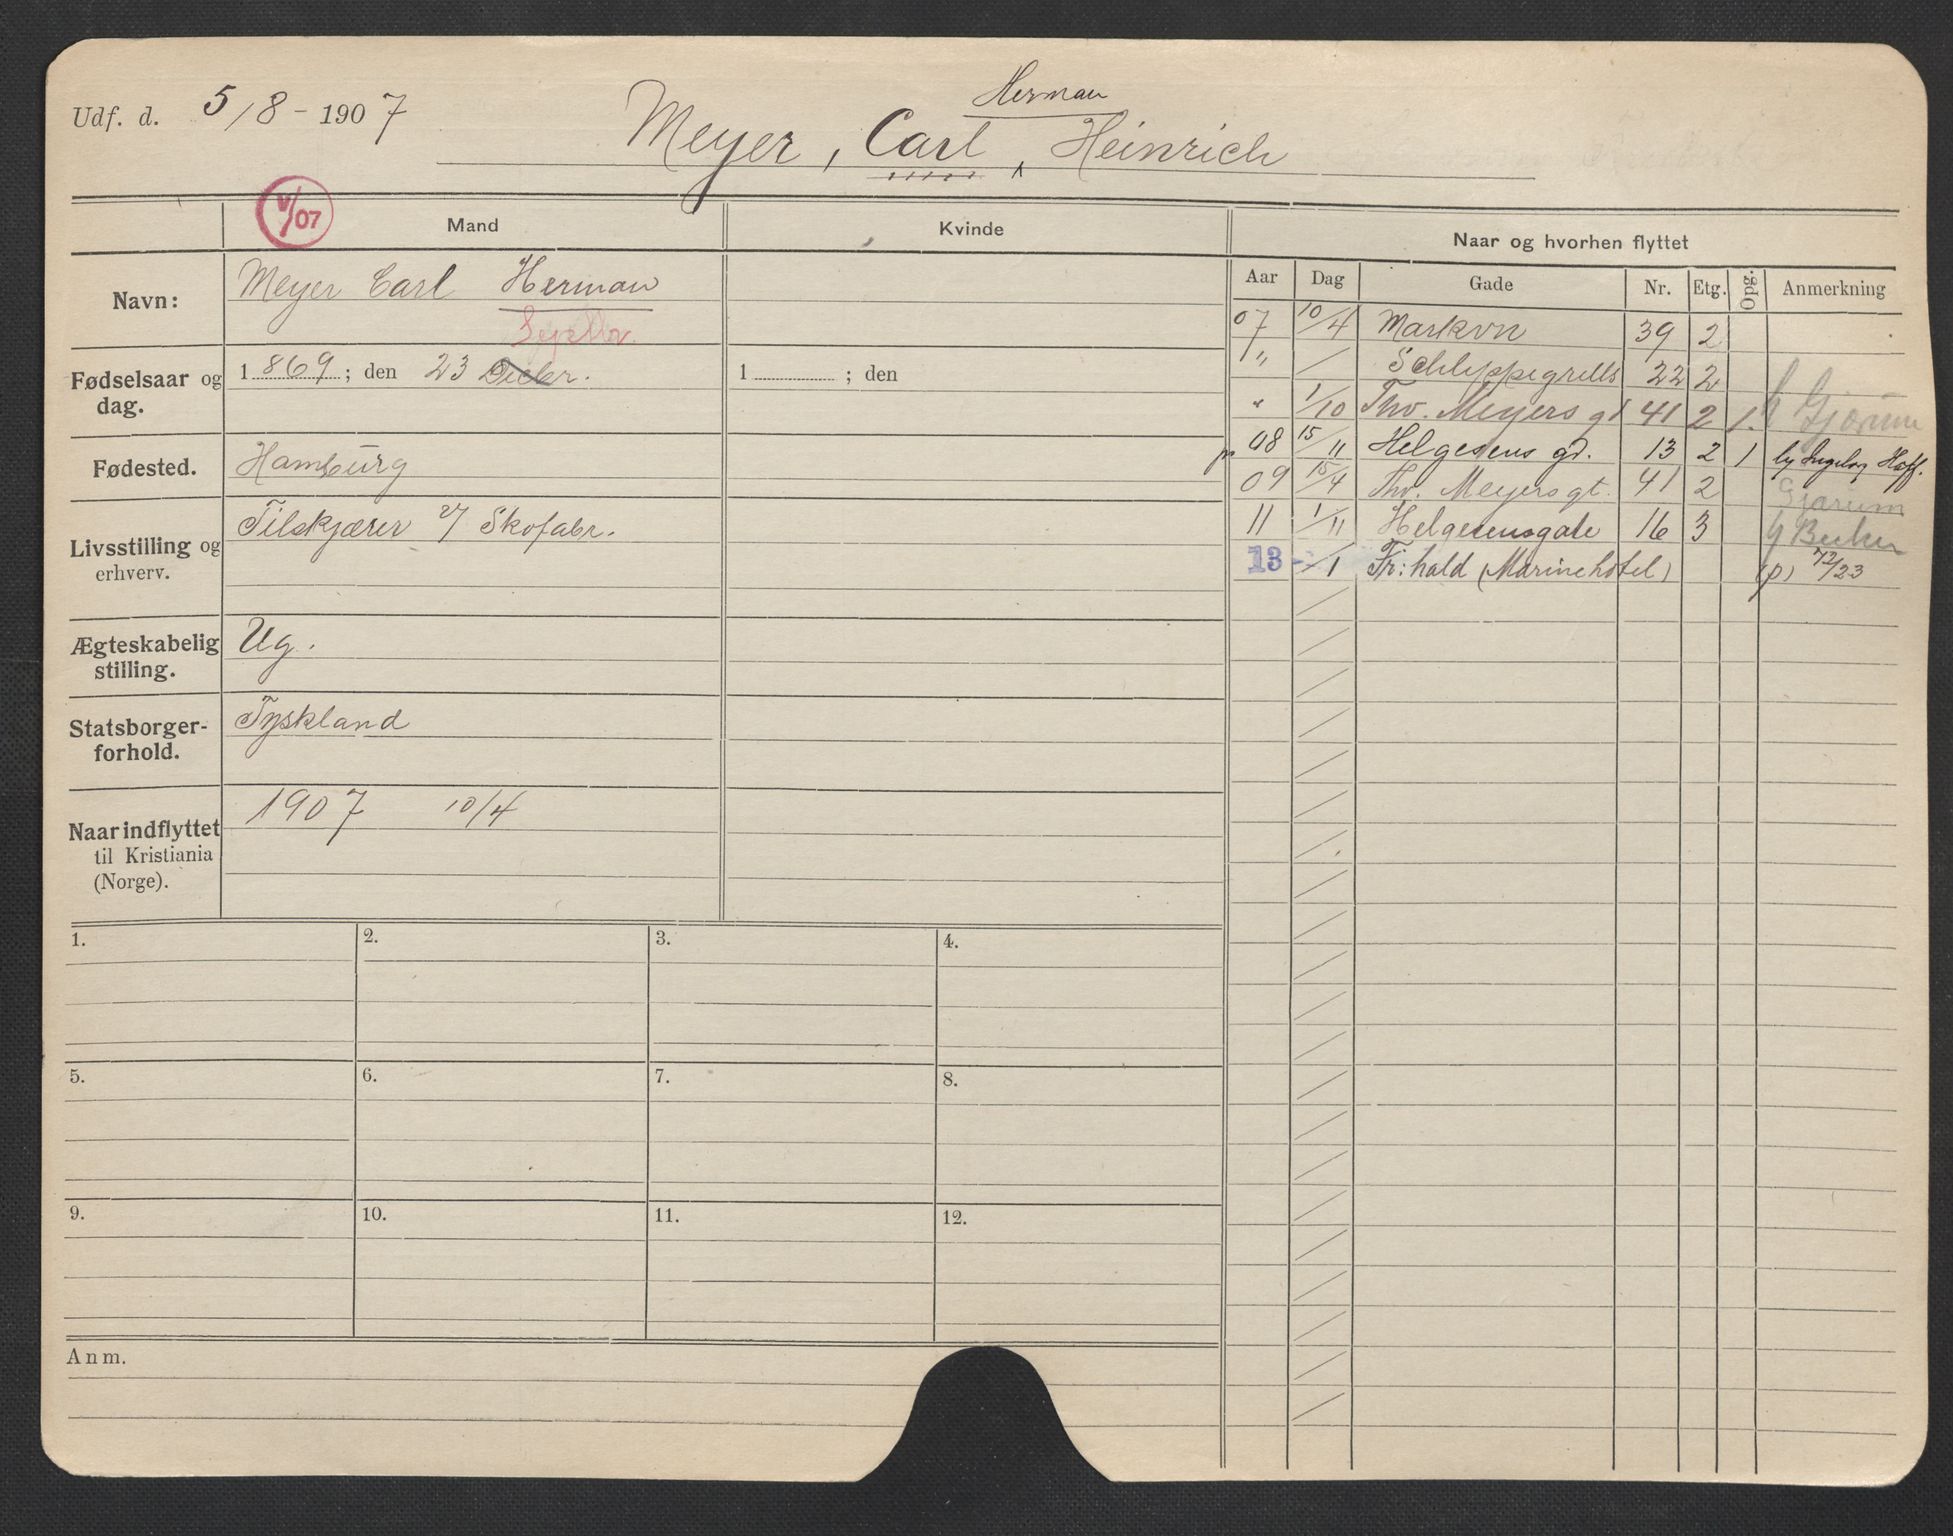 Udf. d. 5/8 - 1907
Herman
Meyer, Carl, Heinrich
V/07
Mand
Kvinde
Naar og hvorhen flyttet
Navn:
Meyer Carl Herman
Septbr.
Fødselsaar og dag.
1869; den 23 Decbr.
1 ; den
Fødested.
Hamburg
Livsstilling og erhverv.
Tilskjærer v/ Skofabr.
Ægteskabelig stilling.
Ug.
Statsborger-forhold.
Tyskland
Naar indflyttet til Kristiania (Norge).
1907 10/4
Aar Dag Gade Nr. Etg. Opg. Anmerkning
07 10/4 Markvn 39 2
" / Schleppegrells 22 2
" 1/10 Thv. Meyers gt 41 2 1. Gjørum
08 15/11 Helgesens gd. 13 2 1 by Ingeborg Hoff.
09 15/4 Thv. Meyers gt. 41 2 Gjørum
11 1/11 Helgesensgate 16 3
13 - /1 Fr:hald (Marinehotel) (p) 72/23
1.
2.
3.
4.
5.
6.
7.
8.
9.
10.
11.
12.
Anm.